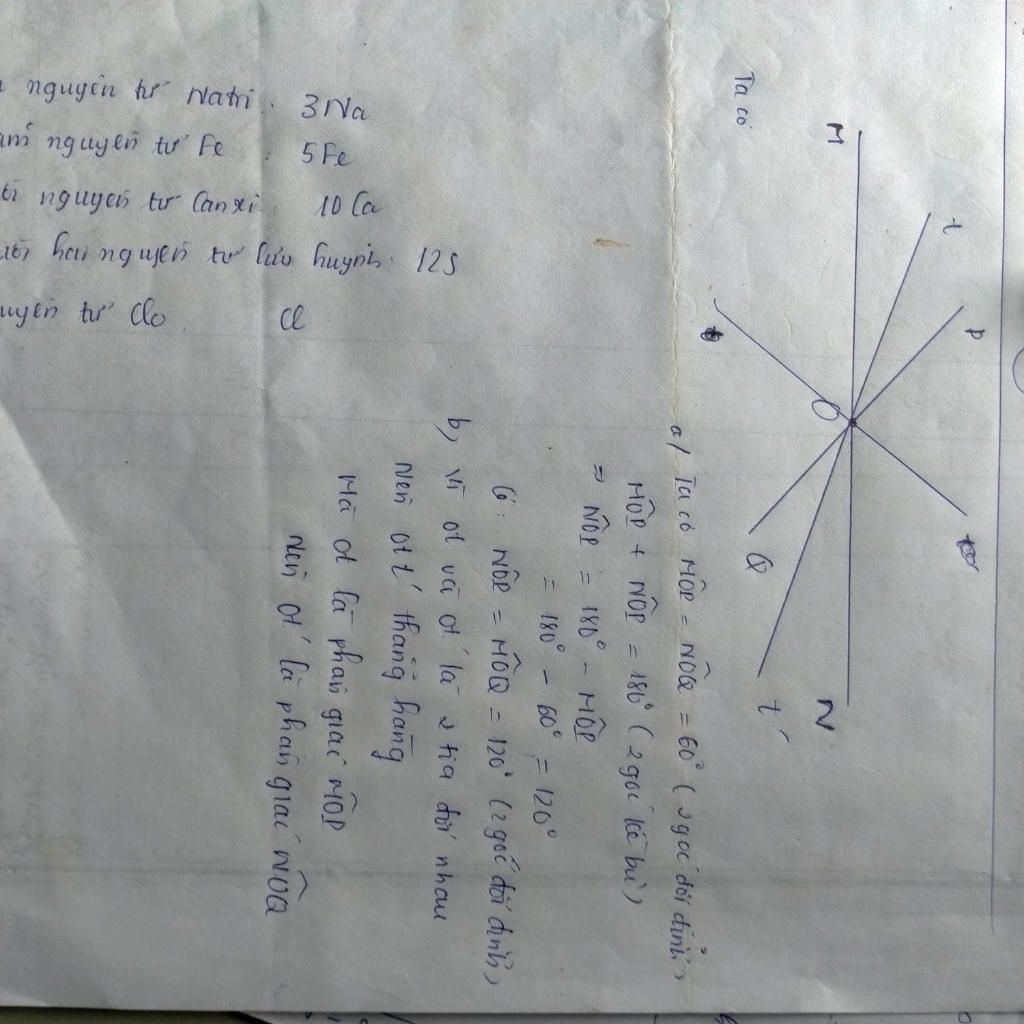 nguyên tử Natri. 3Na
nguyên tử Fe : 5Fe
nguyên tử Canxi. 10 Ca
hai nguyên tử lưu huynh. 12S
tử Clo. Cl
Ta có
M
t
P
O
Q
N
t'
a/ Ta có MÔP = NÔQ = 60° (2 góc đối đỉnh)
MÔP + NÔP = 180° (2 góc kề bù)
=> NÔP = 180° - MÔP
= 180° - 60° = 120°
Có: NÔP = MÔQ = 120° (2 góc đối đỉnh)
b) Vì ot và ot' là 2 tia đối nhau
Nên ot t' thẳng hàng
Mà ot là phân giác MÔP
Nên ot' là phân giác NÔQ